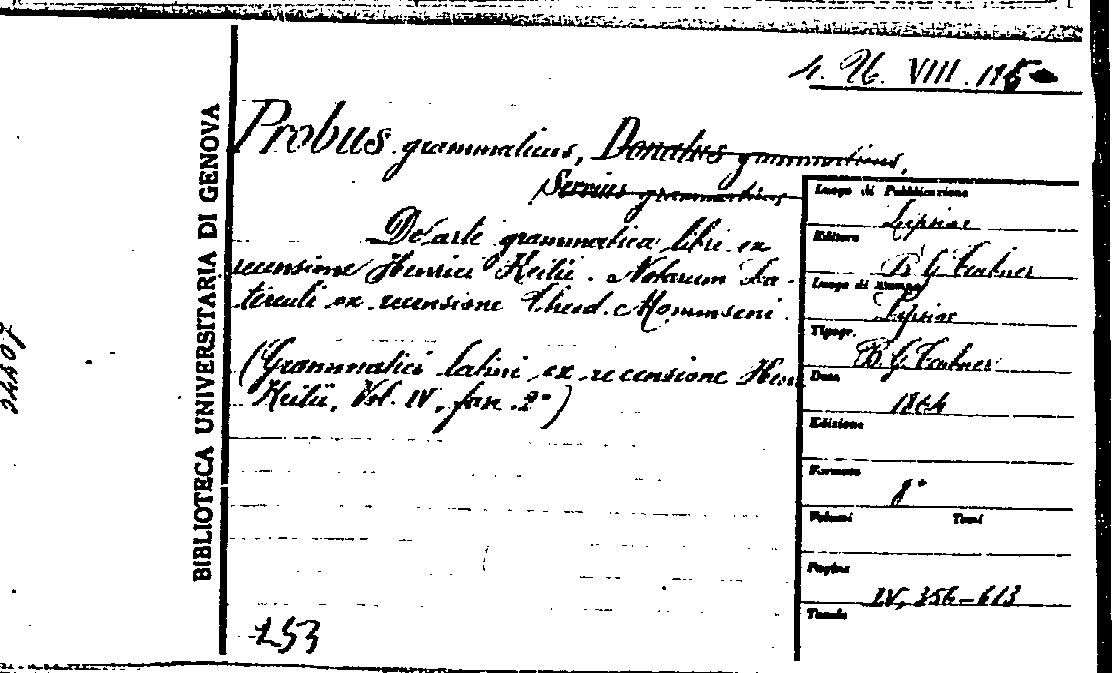 4. N. VIII. 115
Probus grammaticus, Donatus grammaticus,
Servius grammaticus
De arte grammatica libri ex
recensione Henrici Keilii. Notarum La-
terculi ex recensione Theod. Mommseni.
(Grammatici latini ex recensione Henr.
Keilii, Vol. IV, fasc. 2°)
253
BIBLIOTECA UNIVERSITARIA DI GENOVA
Luogo di Pubblicazione
Lipsiae
Editore
B. G. Teubner
Luogo di Stampa
Lipsiae
Tipogr.
B. G. Teubner
Data
1864
Edizione
Formato
8°
Volumi Tomi
Pagine
IV, 356-613
Tavole